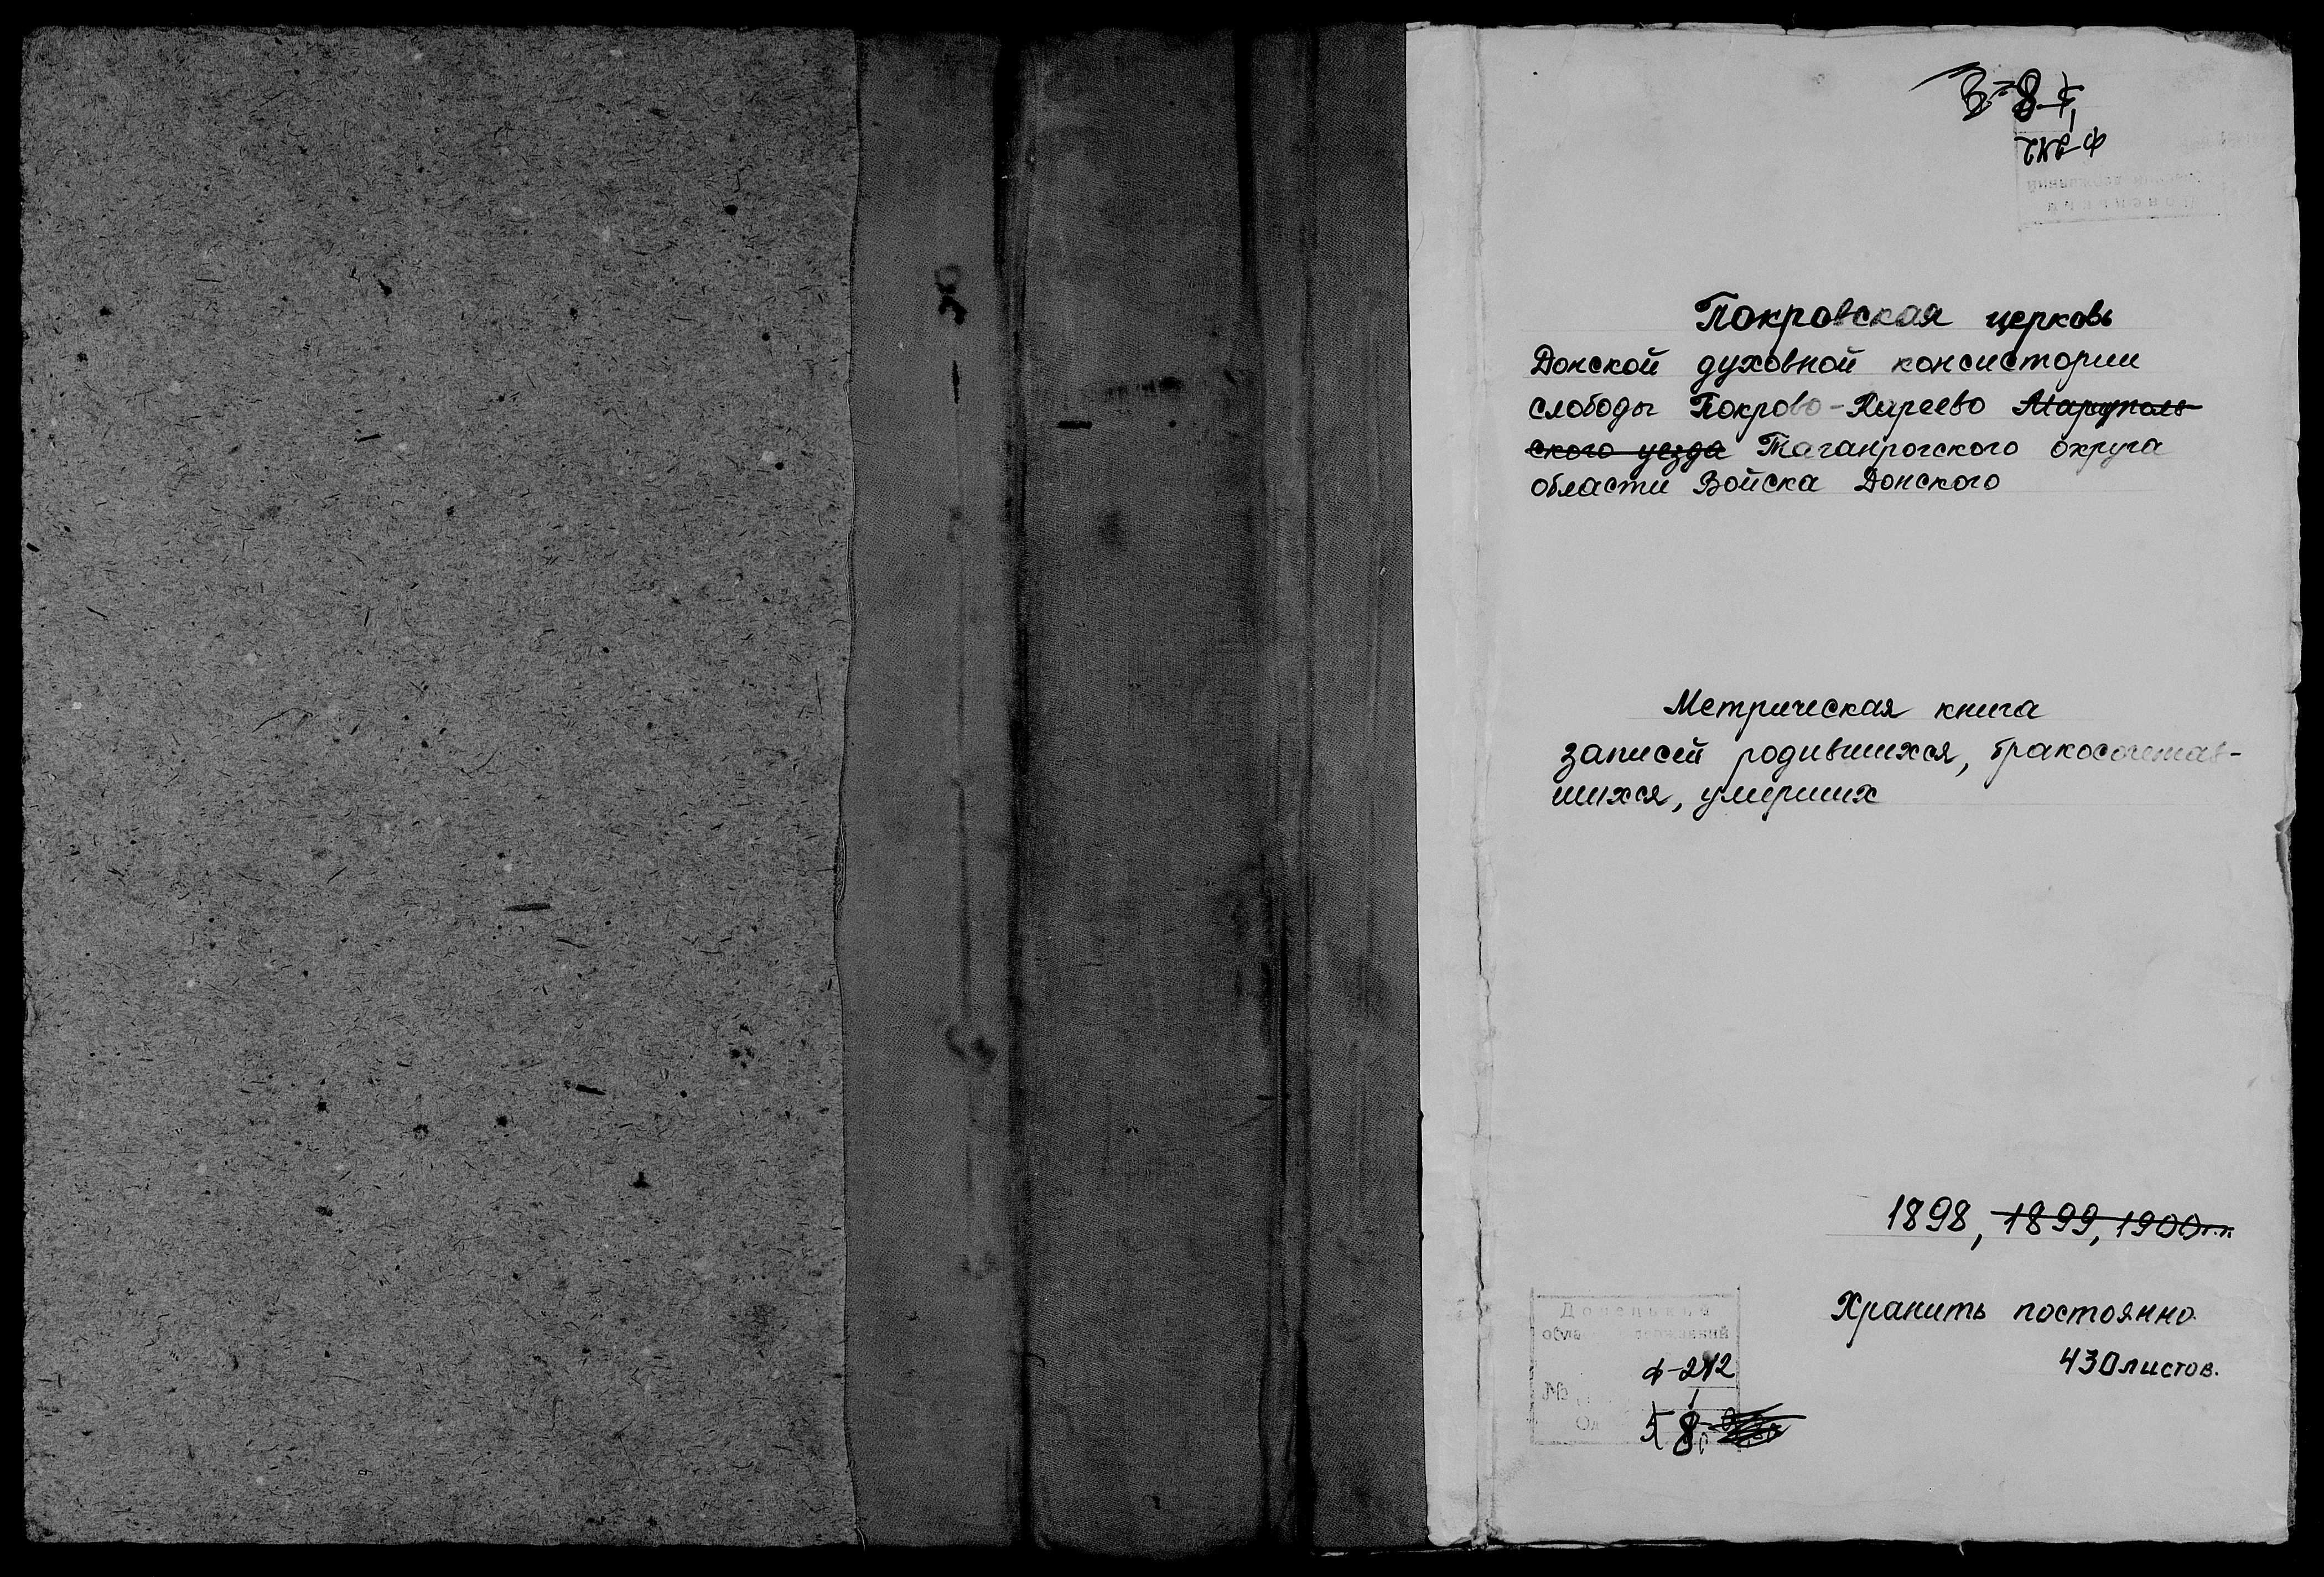 Покровская церковь
Донской духовной консистории
слободы Покрово-Киреево Мариуполь-
ского уезда Таганрогского округа
области Войска Донского
Метрическая книга
записей родившихся, бракосочетав-
шихся, умерших
1898, 1899, 1900 г.г.
Хранить постоянно.
430 листов.
Донецький
ф-212